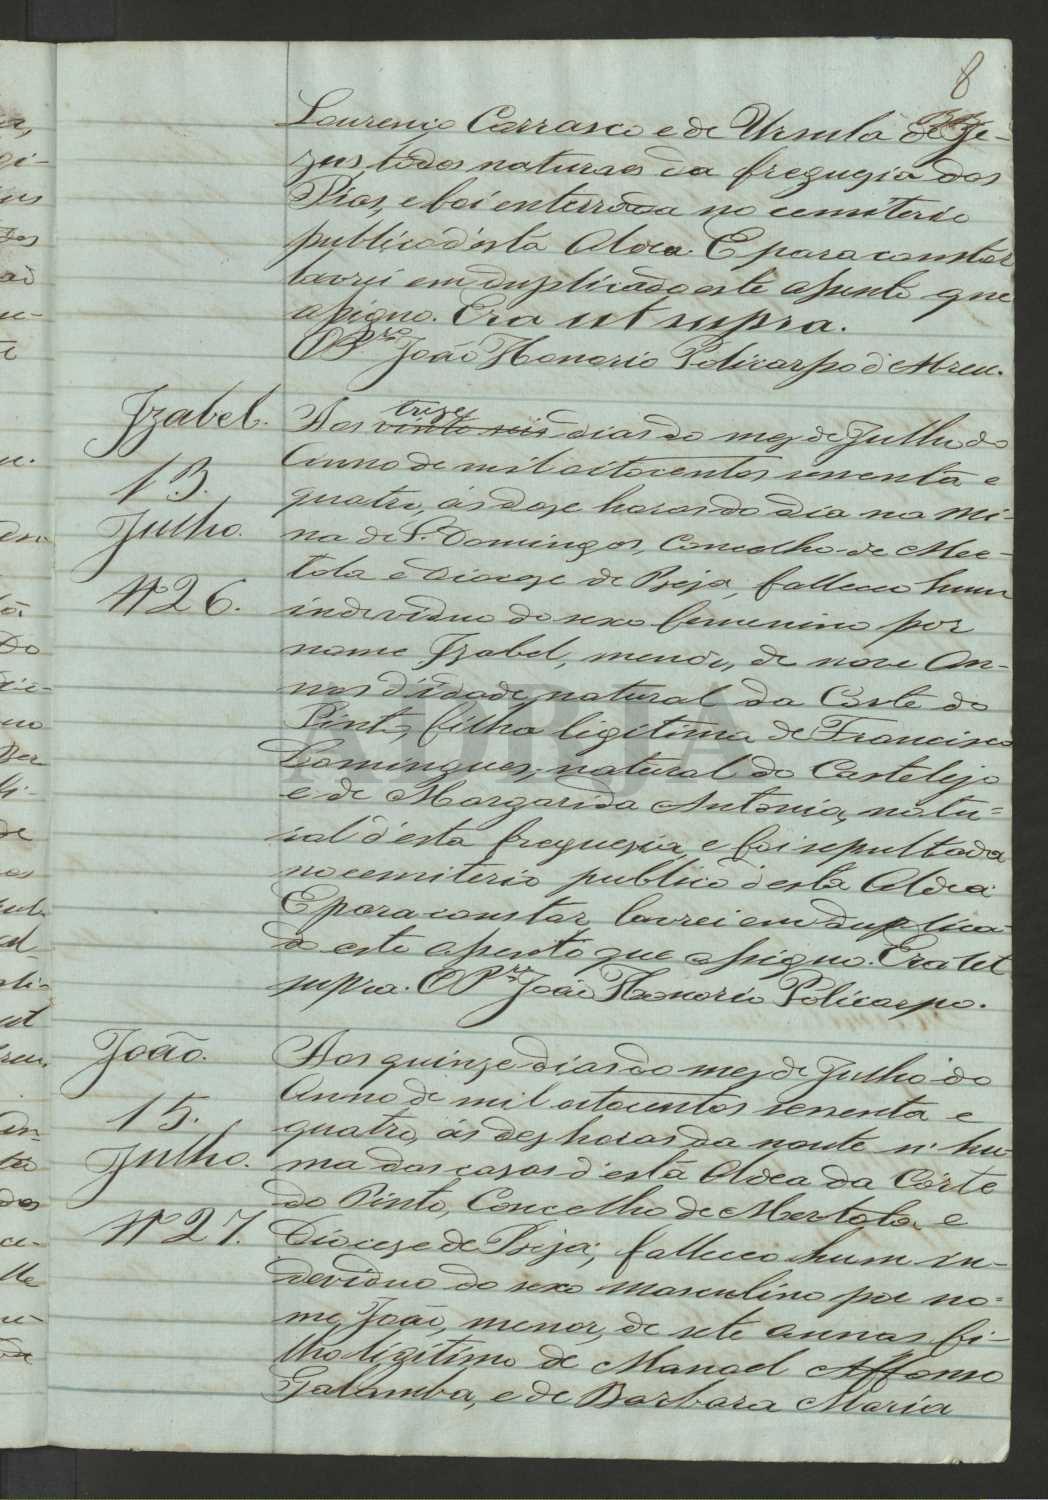 8
Lourenço Carrasco e de Ursula de Je-
zus, todos naturaes da freguezia dos
Pias, e foi enterrada no cemiterio
publico d'esta Aldea. E para constar
lavrei em duplicado este assento que
assigno. Era ut supra.
O Pr.o João Honorio Policarpo d'Abreu.
Izabel.
13.
Julho.
N 26.
Aos vinte seis treze dias do mez de Julho do
Anno de mil oitocentos setenta e
quatro, ás doze horas do dia na Mi-
na de S. Domingos, Concelho de Mer-
tola e Diocese de Beja, falleceo hum
individuo do sexo femenino por
nome Izabel, menor, de nove An-
nos d'idade, natural da Corte do
Pinto, filha legitima de Francisco
Domingues, natural do Castelejo
e de Margarida Antonia, natu-
ral d'esta freguezia, e foi sepultada
no cemiterio publico d'esta Aldea
E para constar lavrei em duplica-
do este assento que assigno. Era ut
supra. O Pr.o João Honorio Policarpo.
João.
15.
Julho.
N 27.
Aos quinze dias do mez de Julho do
Anno de mil oitocentos setenta e
quatro, ás dez horas da noute n'hu-
ma das casas d'esta Aldea da Côrte
do Pinto, Concelho de Mertola e
Diocese de Beja, falleceo hum in-
deviduo do sexo masculino por no-
me João, menor, de sete annos fi-
lho legitimo de Manoel Affonso
Galamba, e de Barbara Maria
ADBJA